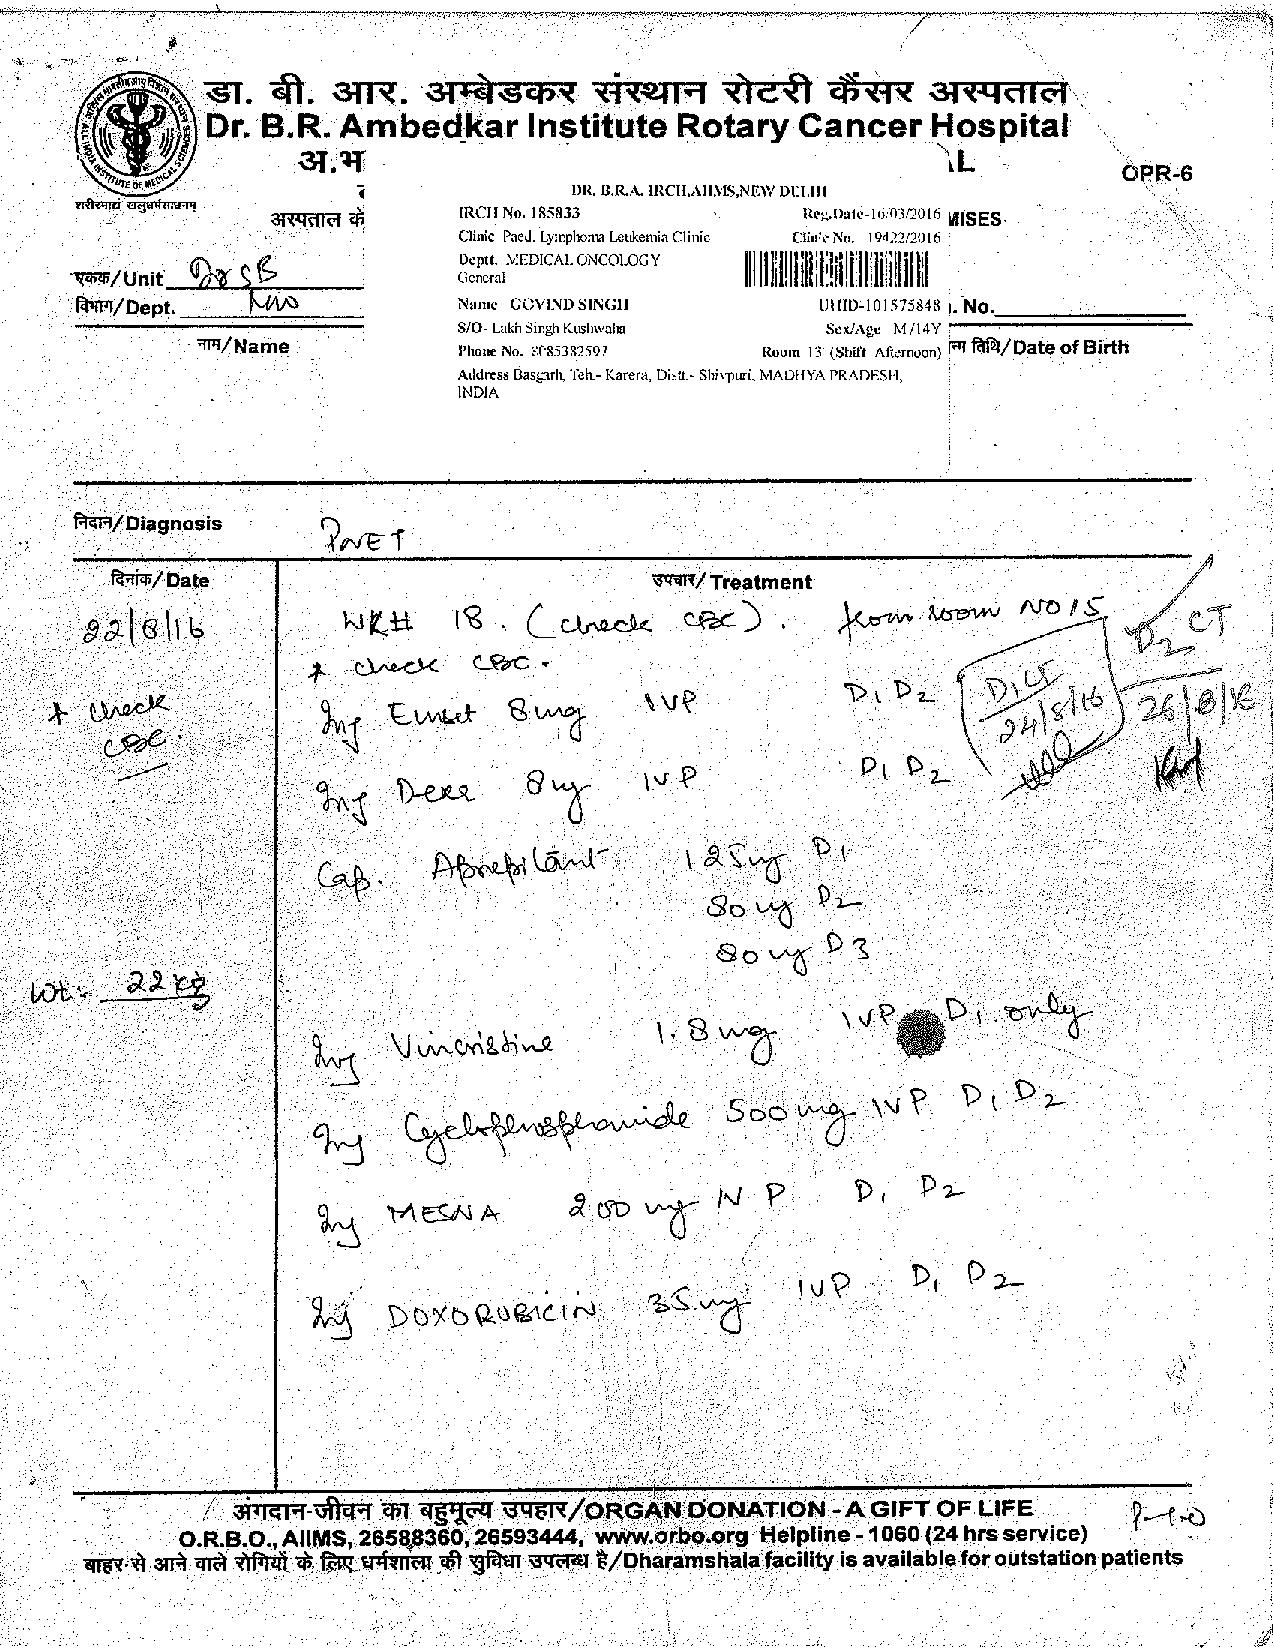 डा. बी. आर. अम्बेडकर संस्थान रोटरी कैंसर अस्पताल
Dr. B.R. Ambedkar Institute Rotary Cancer Hospital
अ.भ
IL
OPR-6
शरीरमाद्यं खलुधर्मसाधनम्
अस्पताल के
MISES
DR. B.R.A. IRCH,AIIMS,NEW DELHI
IRCH No. 185833 Reg.Date-16/03/2016
Clinic Paed. Lymphoma Leukemia Clinic Clinic No. 19422/2016
Deptt. MEDICAL ONCOLOGY
General
Name GOVIND SINGH UHID-101575848
S/O- Lakh Singh Kushwaha Sex/Age M/14Y
Phone No. Room 13 (Shift Afternoon)
Address Basgarh, Teh.- Karera, Distt.- Shivpuri, MADHYA PRADESH,
INDIA
एकक/Unit Dr SB
विभाग/Dept. No.
नाम/Name
न्म तिथि/Date of Birth
निदान/Diagnosis PNET
दिनांक/Date उपचार/Treatment
22/8/16 WK# 18. (check CBC). from room NO 15
* check CBC.
* check
CBC
D2 CT
D1 CT
24/8/16
Inj Emset 8mg IVP D1 D2
Inj Dexa 8mg IVP D1 D2
Cap. Aprepitant 125mg D1
80mg D2
80mg D3
Wt:- 22 kg
Inj Vincristine 1.8mg IVP D1 only
Inj Cyclophosphamide 500mg IVP D1 D2
Inj MESNA 200mg IVP D1 D2
Inj DOXORUBICIN 35mg IVP D1 D2
अंगदान-जीवन का बहुमूल्य उपहार/ORGAN DONATION - A GIFT OF LIFE
O.R.B.O., AIIMS, 26588360, 26593444, www.orbo.org Helpline - 1060 (24 hrs service)
बाहर से आने वाले रोगियों के लिए धर्मशाला की सुविधा उपलब्ध है/Dharamshala facility is available for outstation patients